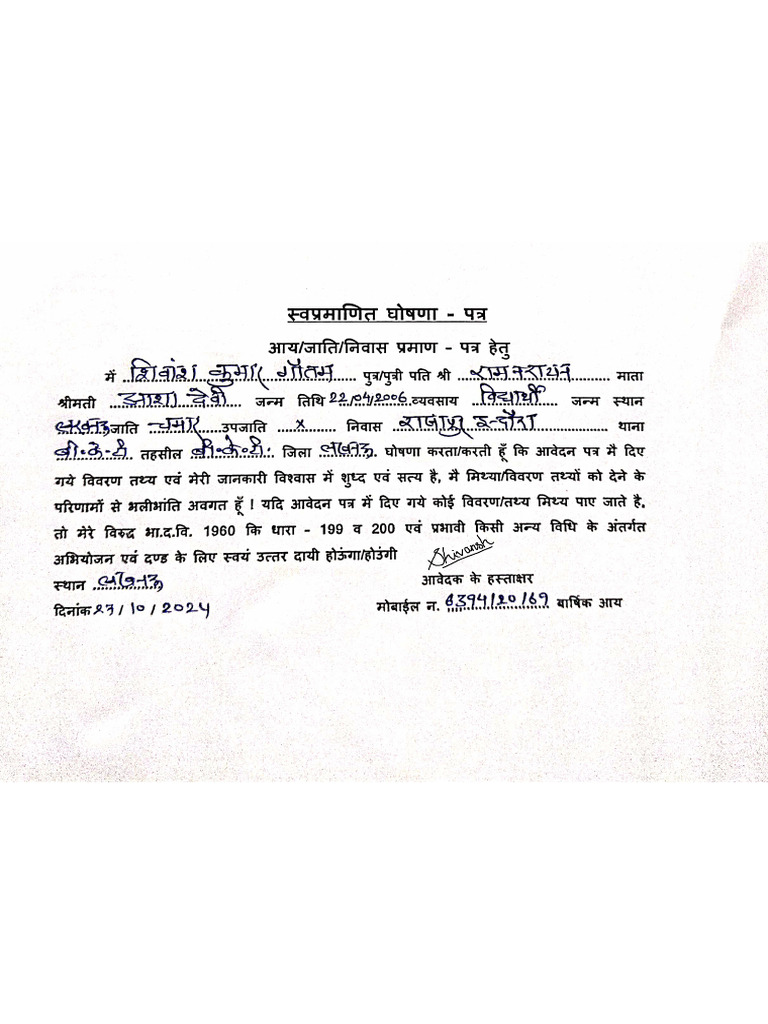 स्वप्रमाणित घोषणा - पत्र
आय/जाति/निवास प्रमाण - पत्र हेतु
में शिवांश कुमार गौतम पुत्र/पुत्री पति श्री रामनरायन माता
श्रीमती आशा देवी जन्म तिथि 22/04/2006 व्यवसाय विद्यार्थी जन्म स्थान
लखनऊ जाति चमार उपजाति x निवास राजापुर इन्दौरा थाना
बी.के.टी. तहसील बी.के.टी. जिला लखनऊ घोषणा करता/करती हूँ कि आवेदन पत्र मै दिए
गये विवरण तथ्य एवं मेरी जानकारी विश्वास में शुध्द एवं सत्य है, मै मिथ्या/विवरण तथ्यों को देने के
परिणामों से भलीभांति अवगत हूँ ! यदि आवेदन पत्र में दिए गये कोई विवरण/तथ्य मिथ्य पाए जाते है,
तो मेरे विरुद्ध भा.द.वि. 1960 कि धारा - 199 व 200 एवं प्रभावी किसी अन्य विधि के अंतर्गत
अभियोजन एवं दण्ड के लिए स्वयं उत्तर दायी होऊंगा/होउंगी Shivansh
स्थान लखनऊ आवेदक के हस्ताक्षर
दिनांक 23/10/2024 मोबाईल न. 6394120169 बार्षिक आय